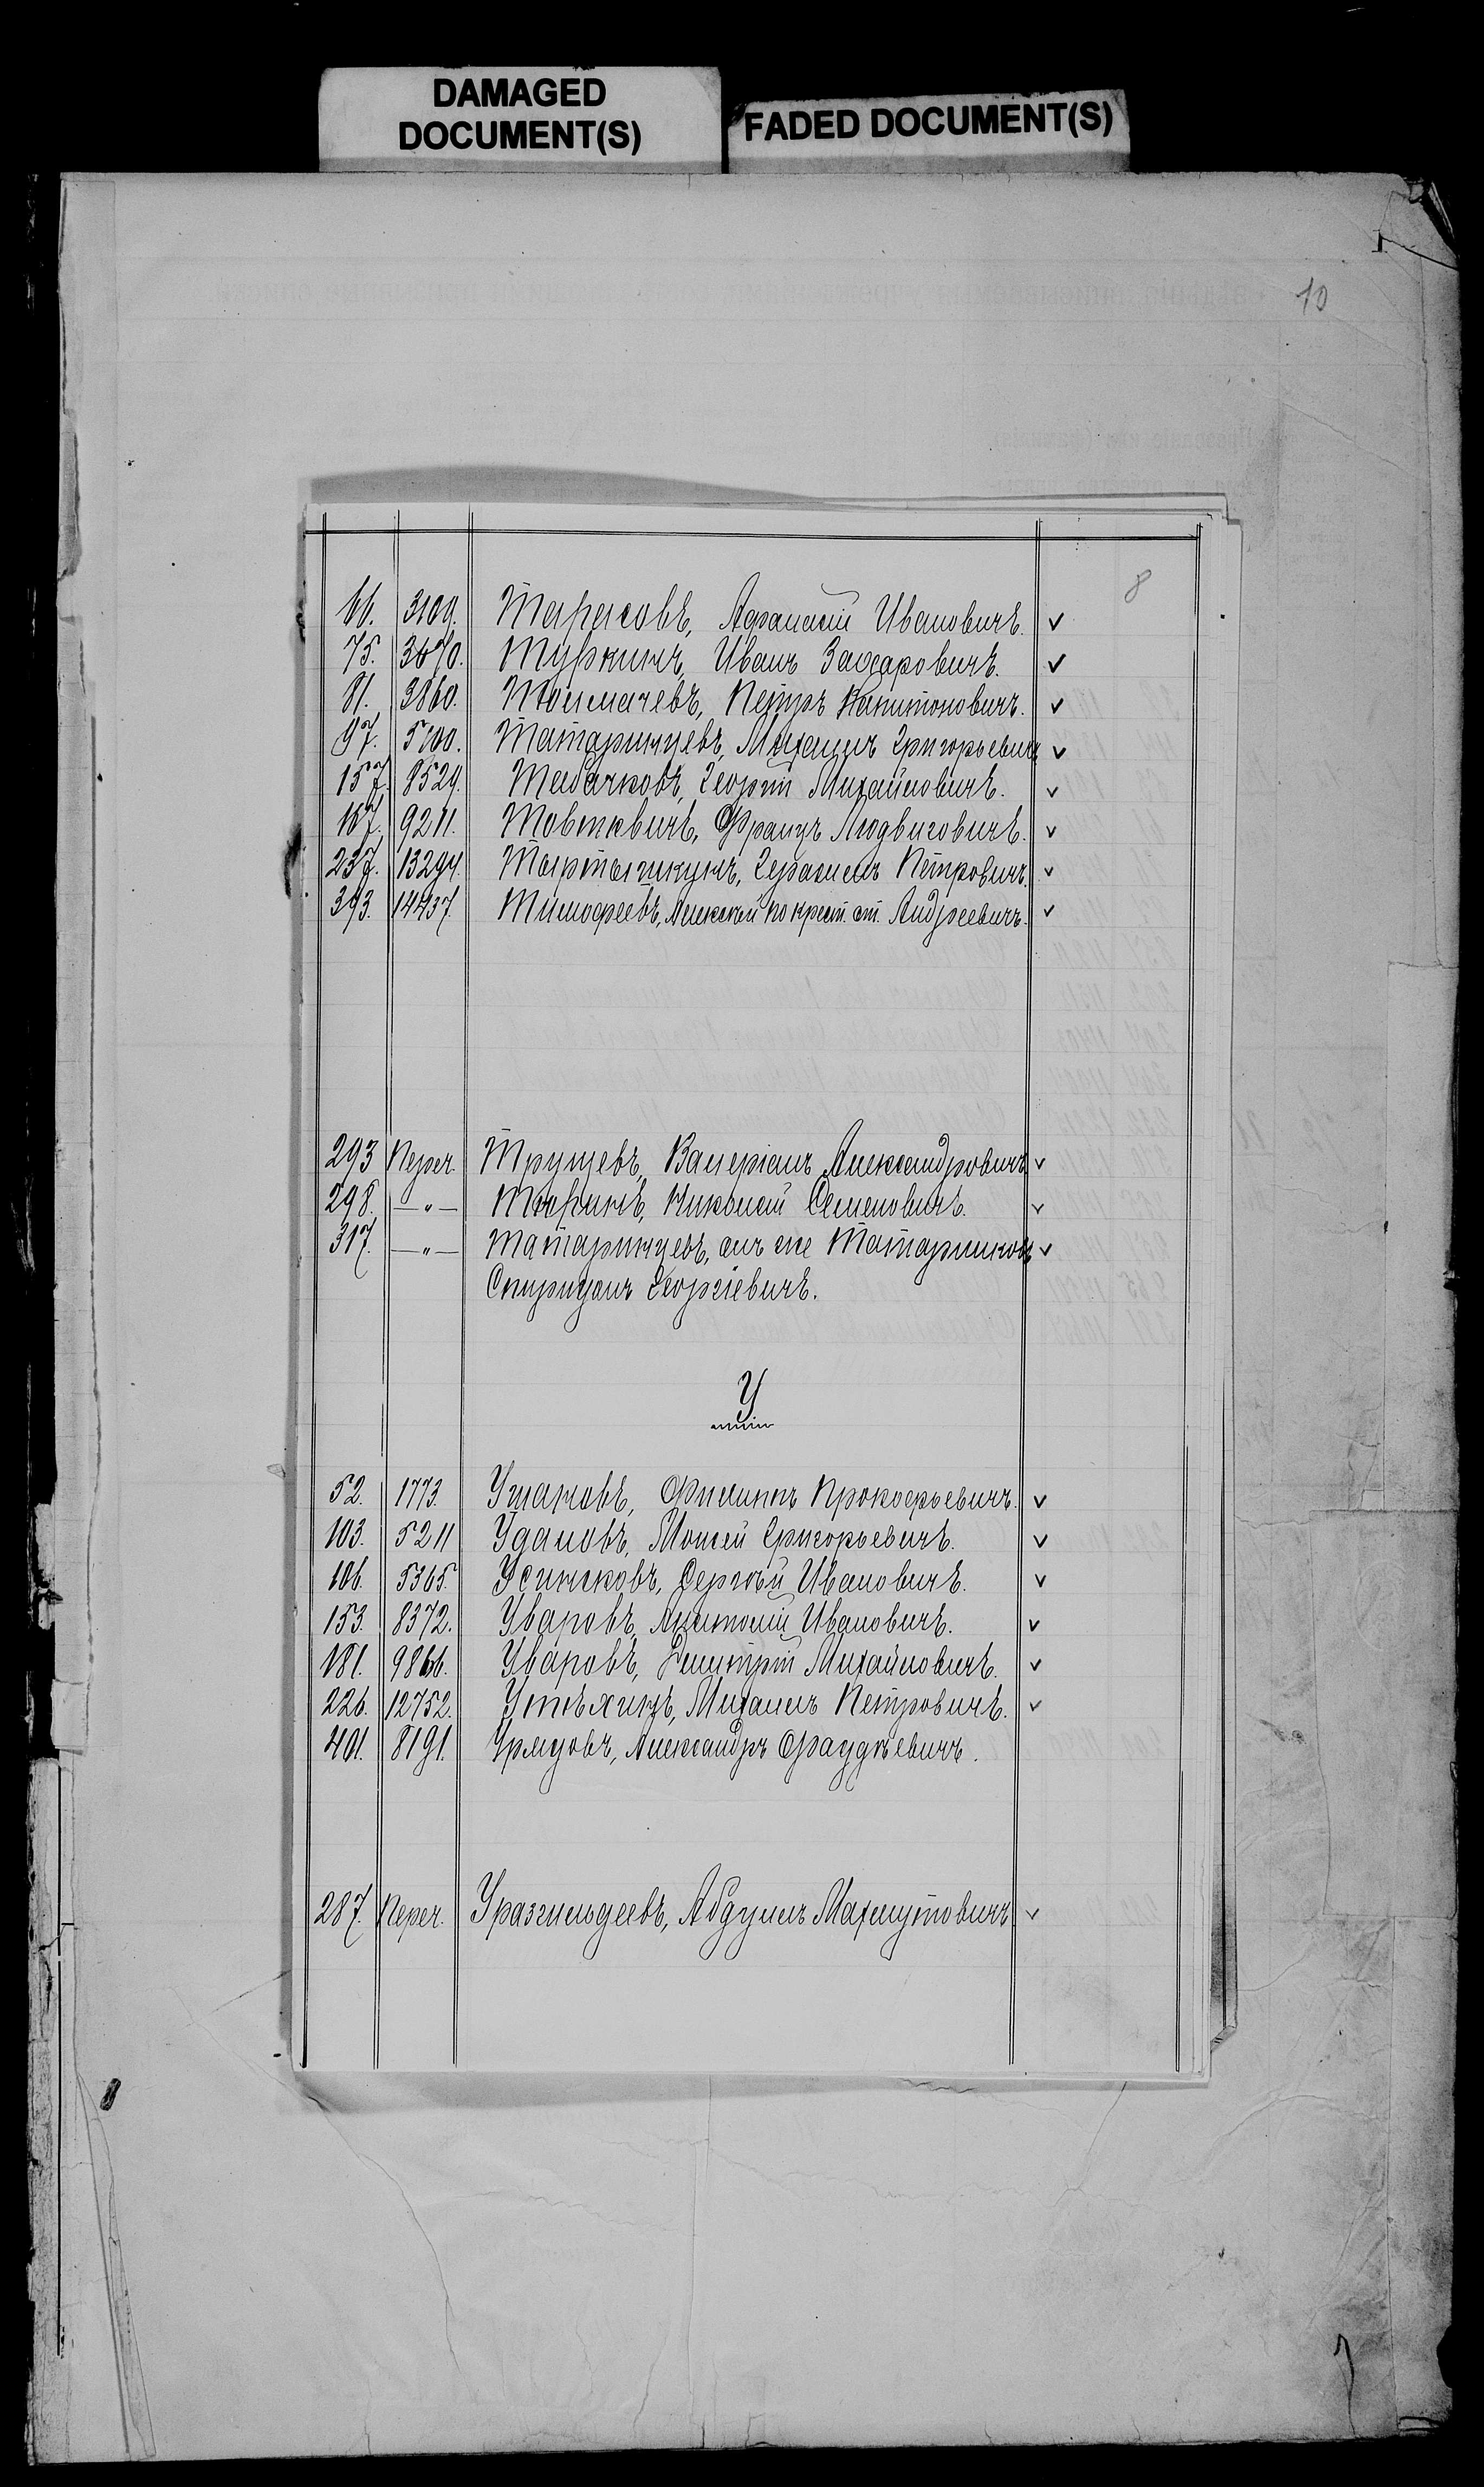 DAMAGED
DOCUMENT(S)
FADED DOCUMENT(S)
10
8
66. 3109. Тарасовъ, Афанасій Ивановичъ. ✓
75. 3470. Туркинъ, Иванъ Захаровичъ. ✓
81. 3860. Толмачевъ, Петръ Капитоновичъ. ✓
97. 5100. Татаринцевъ, Михаилъ Григорьевичъ ✓
157. 8529. Табачковъ, Георгій Михайловичъ. ✓
167. 9211. Товткевичъ, Францъ Людвиговичъ. ✓
237. 13294. Тыртышкинъ, Герасимъ Петровичъ. ✓
393. 14437. Тимофеевъ, Алексѣй по крест. от. Андреевичъ. ✓
293 Переч. Трущевъ, Валеріанъ Александровичъ ✓
298. —„— Тюринъ, Николай Семеновичъ. ✓
317. —„— Татаринцевъ, онъ же Татариновъ ✓
Спиридонъ Георгіевичъ.
У
52. 1773. Ушаковъ, Филиппъ Прокофьевичъ. ✓
103. 5211 Удаловъ, Моисей Григорьевичъ. ✓
106. 5365. Усинсковъ, Сергѣй Ивановичъ. ✓
153. 8372. Уваровъ, Анатолій Ивановичъ. ✓
181. 9866. Уваровъ, Димитрій Михайловичъ. ✓
226. 12752. Утѣхинъ, Михаилъ Петровичъ. ✓
401. 8191. Урядовъ, Александръ Фаддѣевичъ.
287. Переч. Уразгильдеевъ, Абдулъ Махмутовичъ ✓